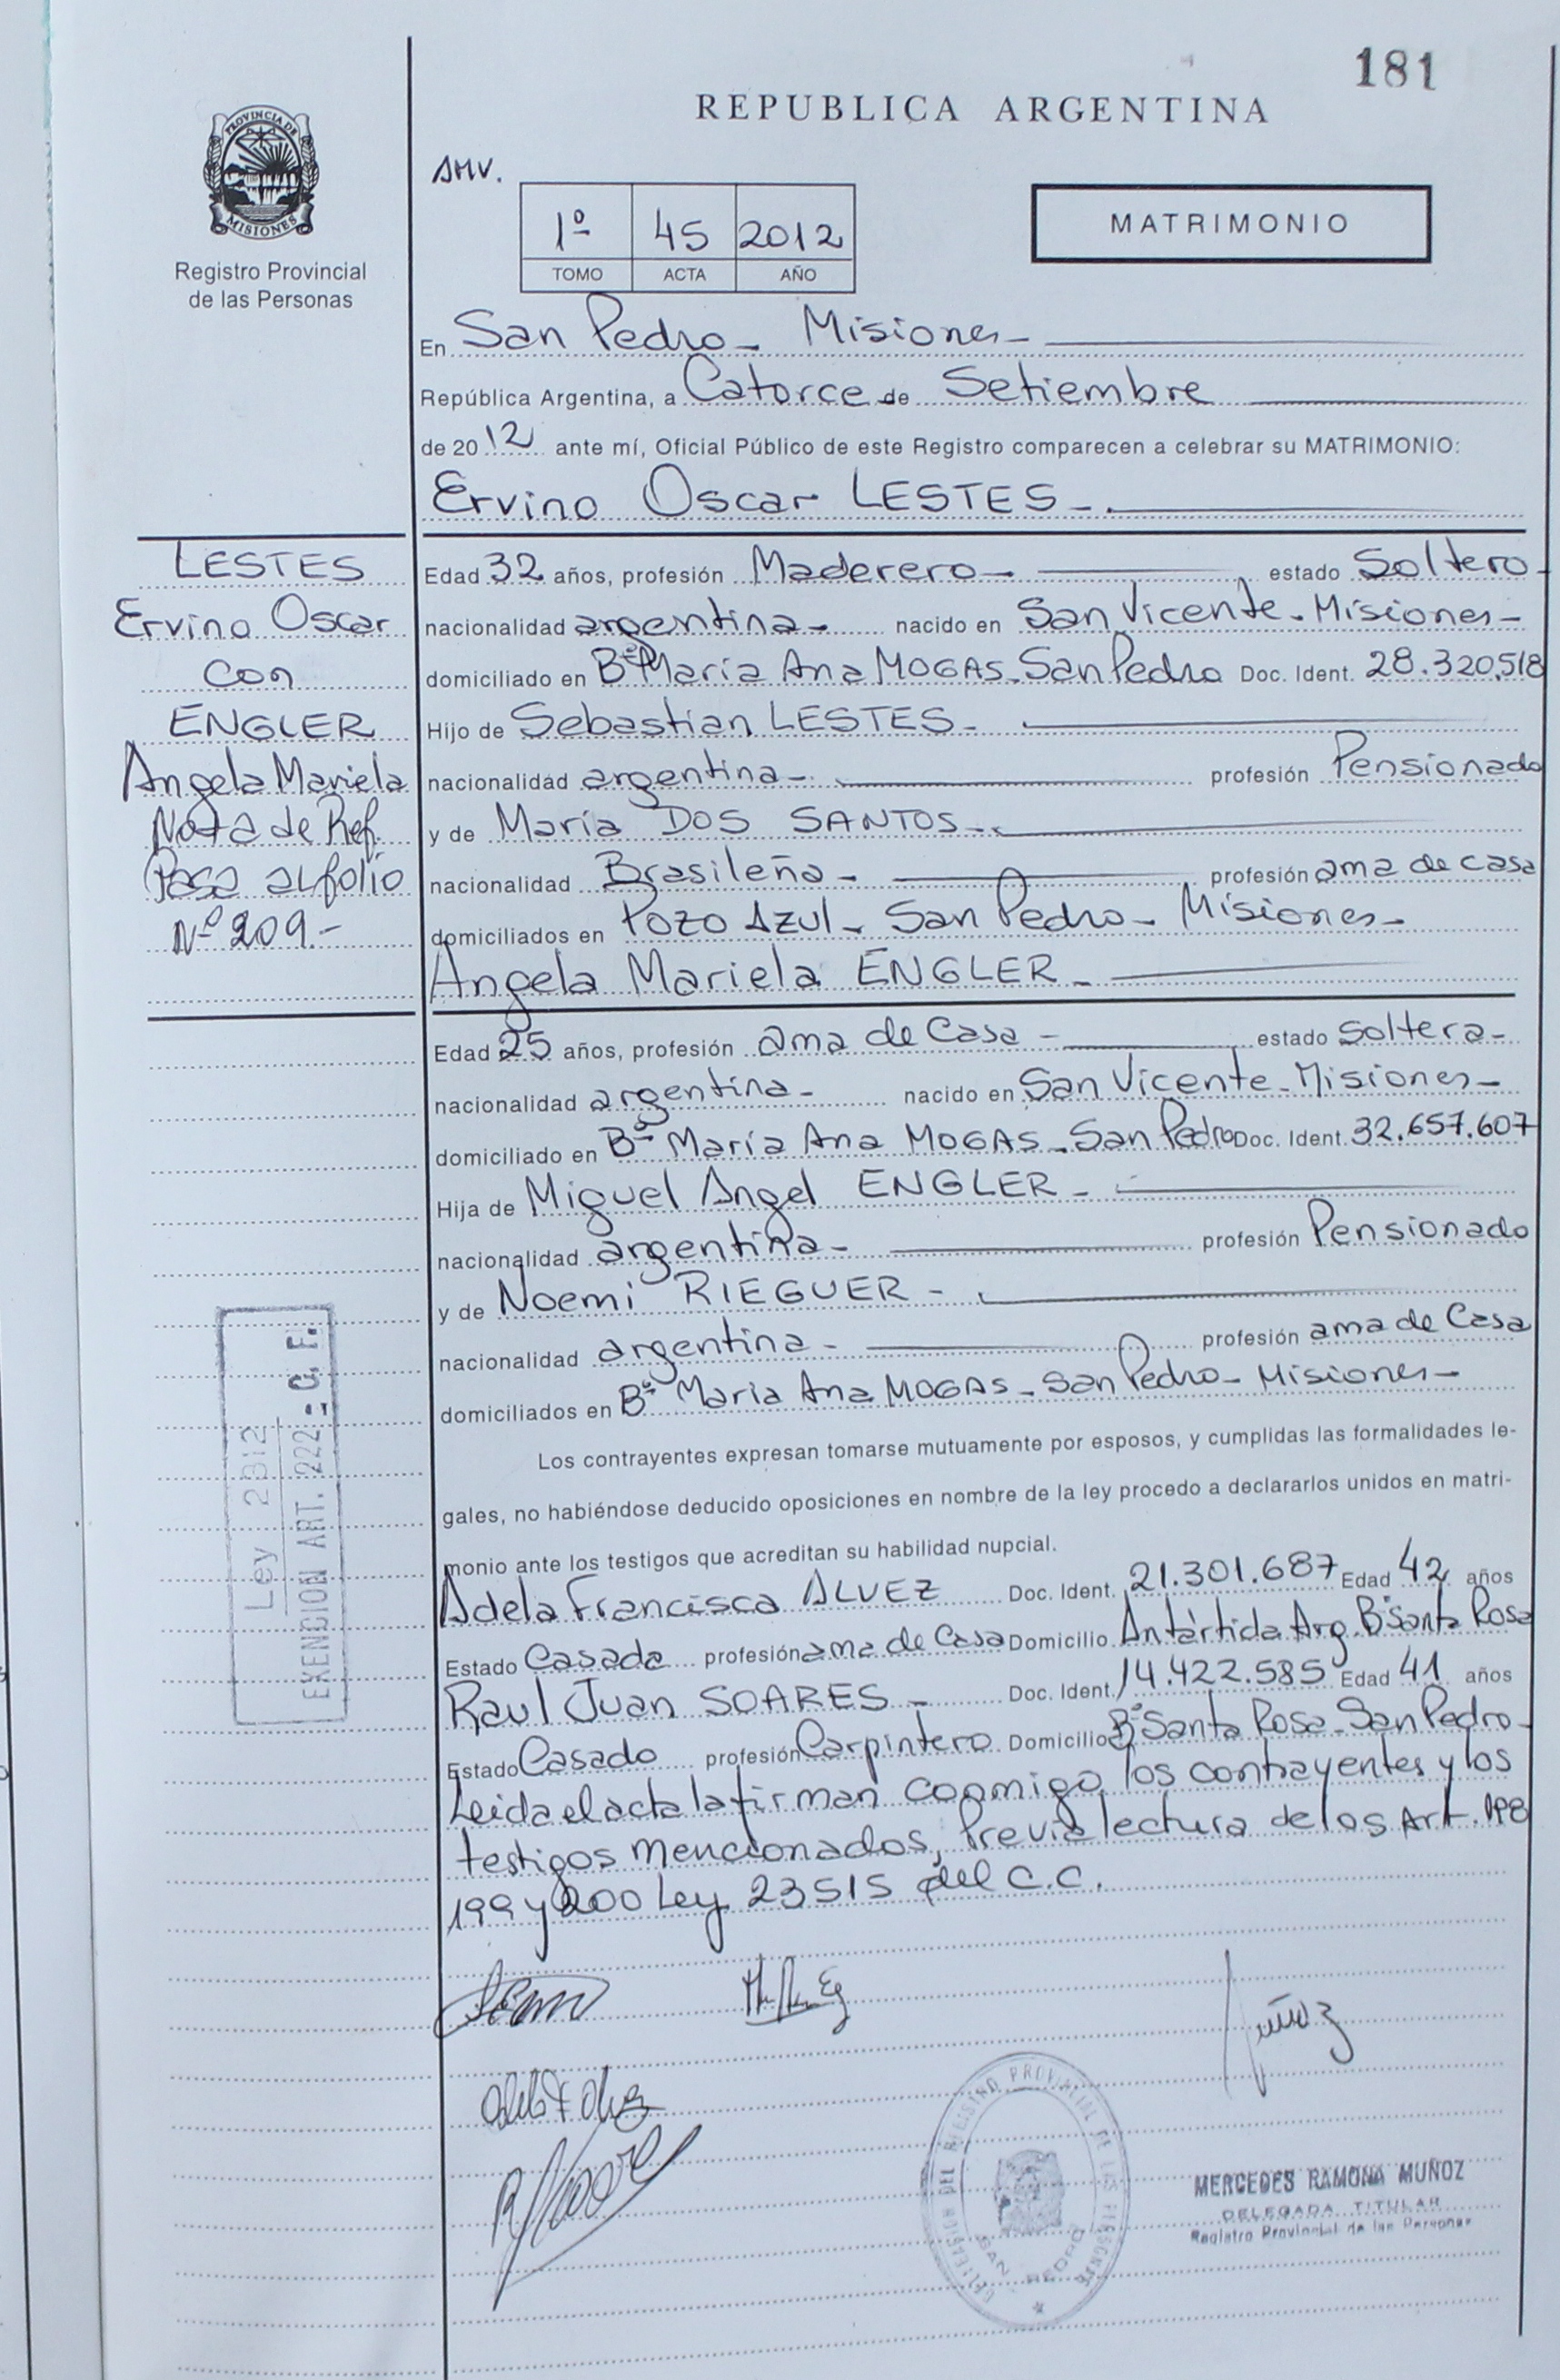 181
REPUBLICA ARGENTINA
PROVINCIA DE
MISIONES
Registro Provincial
de las Personas
AMV.
1º 45 2012
TOMO ACTA AÑO
MATRIMONIO
En San Pedro - Misiones -
República Argentina, a Catorce de Setiembre
de 2012 ante mí, Oficial Público de este Registro comparecen a celebrar su MATRIMONIO:
Ervino Oscar LESTES - .
LESTES
Ervino Oscar
con
ENGLER
Angela Mariela
Nota de Ref.
Pasa al folio
Nº 209.-
Edad 32 años, profesión Maderero - estado Soltero -
nacionalidad argentina - nacido en San Vicente - Misiones -
domiciliado en Bº María Ana MOGAS - San Pedro Doc. Ident. 28.320.518
Hijo de Sebastian LESTES -
nacionalidad argentina - profesión Pensionado
y de María DOS SANTOS -
nacionalidad Brasileña - profesión ama de casa
domiciliados en Pozo Azul - San Pedro - Misiones -
Angela Mariela ENGLER -
Edad 25 años, profesión ama de Casa - estado Soltera -
nacionalidad argentina - nacido en San Vicente - Misiones -
domiciliado en Bº María Ana MOGAS - San Pedro Doc. Ident. 32.657.607
Hija de Miguel Angel ENGLER -
nacionalidad argentina - profesión Pensionado
y de Noemi RIEGUER -
nacionalidad argentina - profesión ama de Casa
domiciliados en Bº Maria Ana MOGAS - San Pedro - Misiones -
Los contrayentes expresan tomarse mutuamente por esposos, y cumplidas las formalidades le-
gales, no habiéndose deducido oposiciones en nombre de la ley procedo a declararlos unidos en matri-
monio ante los testigos que acreditan su habilidad nupcial.
Adela Francisca ALVEZ Doc. Ident. 21.301.687 Edad 42 años
Estado Casada profesión ama de Casa Domicilio Antártida Arg. Bº Santa Rosa
Raul Juan SOARES - Doc. Ident. 14.422.585 Edad 41 años
Estado Casado profesión Carpintero Domicilio Bº Santa Rosa - San Pedro -
Leida el acta la firman conmigo, los contrayentes y los
testigos mencionados, Previa lectura de los Art. 198
199 y 200 Ley 23515 del C.C.
Ley 2312
EXENCION ART. 222 - C. F.
DELEGACION DEL REGISTRO PROVINCIAL DE LAS PERSONAS
SAN PEDRO
MERCEDES RAMONA MUÑOZ
DELEGADA TITULAR
Registro Provincial de las Personas